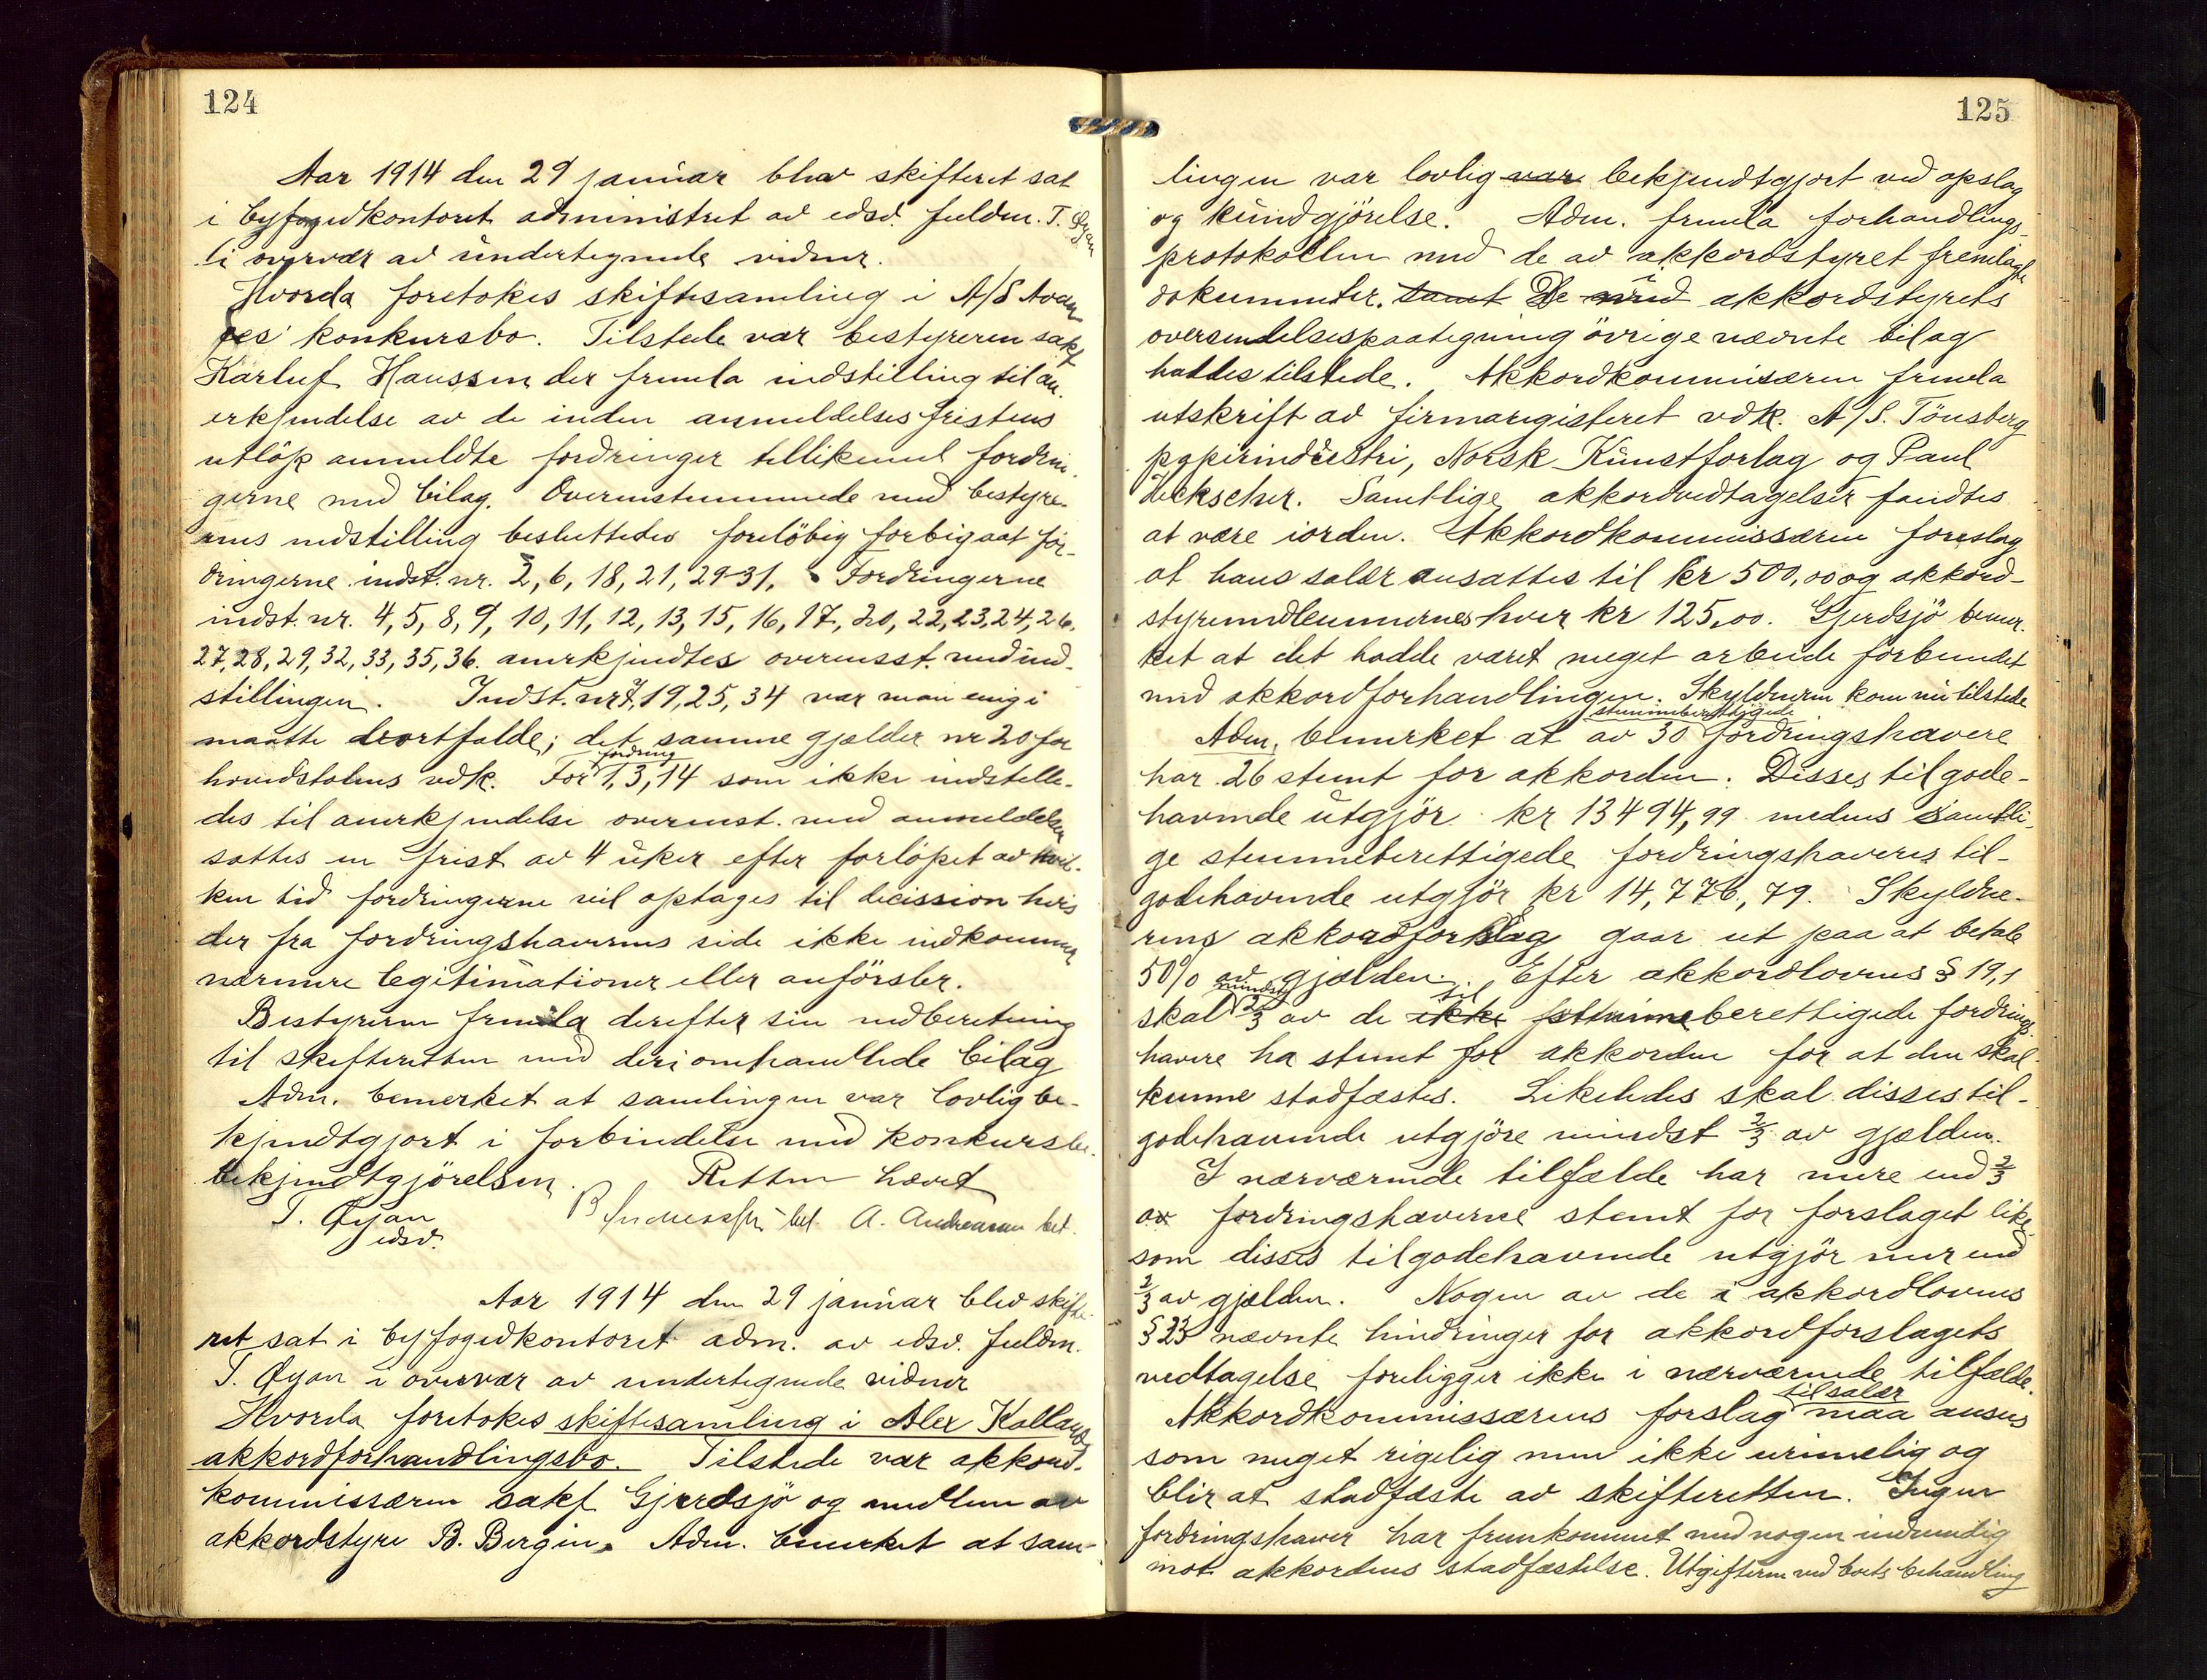 124
Aar 1914 den 29 januar blev skifteret sat
i byfogedkontoret administret av edsv. fuldm. T. Øyan
i overvær av undertegnede vidner.
Hvorda foretokes skiftesamling i A/S
konkursbo. Tilstede var bestyreren sakf
Karluf Hanssen der fremla indstilling til an-
erkjendelse av de inden anmeldelsesfristens
utløp anmeldte fordringer tillikemed fordrin-
gerne med bilag. Overenstemmende med bestyre-
rens indstilling besluttedes foreløbig forbigaat for-
dringerne indst. nr. 2, 6, 18, 21, 29-31. Fordringerne
indst. nr. 4, 5, 8, 9, 10, 11, 12, 13, 15, 16, 17, 20, 22, 23, 24, 26,
27, 28, 29, 32, 33, 35, 36. anerkjendtes overensst. med ind-
stillingen. Indst. nr 7, 19, 25, 34 var man enig i
maatte bortfalde; det samme gjælder nr 20 for
hovedstolens vdk. For fordring 1, 3, 14 som ikke indstille-
des til anerkjendelse overenst. med anmeldelsen
sattes en frist av 4 uker efter forløpet av hvil-
ken tid fordringerne vil optages til decission hvis
der fra fordringshavernes side ikke indkommer
nærmere legitimationer eller anførsler.
Bestyreren fremla derefter sin indberetning
til skifteretten med deri omhandlede bilag
Adm. bemerket at samlingen var lovlig be-
kjendtgjort i forbindelse med konkursbe-
bekjendtgjørelsen. Retten hævet
T. Øyan B. bet. A. Andreassen bet.
edsv.
Aar 1914 den 29 januar blev skifte-
ret sat i byfogedkontoret adm. av edsv. fuldm.
T. Øyan i overvær av undertegnede vidner
Hvorda foretokes skiftesamling i Alex Kallands
akkordforhandlingsbo. Tilstede var akkord-
kommissæren sakf Gjerdsjø og medlem av
akkordstyre B. Bergin. Adm. bemerket at sam-
125
lingen var lovlig var bekjendtgjort ved opslag
og kundgjørelse. Adm. fremla forhandlings-
protokollen med de av akkordstyret fremlagte
dokumenter. samt De med i akkordstyrets
oversendelsespaategning øvrige nævnte bilag
hattes tilstede. Akkordkommisæren fremla
utskrift av firmaregisteret vdk. A/S. Tønsberg
papirindustri, Norsk Kunstforlag og Paul
Heckscher. Samtlige akkordvedtagelser fandtes
at være iorden. Akkordkommissæren foreslog
at hans salær ansattes til kr 500,00 og akkord-
styremedlemmernes hver kr 125,00. Gjerdsjø bemer-
ket at det hadde været meget arbeide forbundet
med akkordforhandlingen. Skyldneren kom nu tilstede
Adm. bemerket at av 30 stemmeberettigede fordringshavere
har 26 stemt for akkorden. Disses tilgode-
havende utgjør kr 13494,99 medens samtli-
ge stemmeberettigede fordringshaveres til-
godehavende utgjør kr 14,776,79. Skyldne-
rens akkordforslag gaar ut paa at betale
50% av gjælden. Efter akkordlovens § 19,1
skal mindst 2/3 av de ikke til stemmeberettigede fordrings-
havere ha stemt for akkorden for at den skal
kunne stadfæstes. Likeledes skal disses til-
godehavende utgjøre mindst 2/3 av gjælden.
I nærværende tilfælde har mere end 2/3
av fordringshaverne stemt for forslaget like-
som disses tilgodehavende utgjør mer end
2/3 av gjælden. Nogen av de i akkordlovens
§ 23 nævnte hindringer for akkordforslagets
vedtagelse foreligger ikke i nærværende tilfælde.
Akkordkommissærens forslag til salær maa anses
som meget rigelig men ikke urimelig og
blir at stadfæste av skifteretten. Ingen
fordringshaver har fremkommet med nogen indvending
mot akkordens stadfæstelse. Utgifterne ved boets behandling